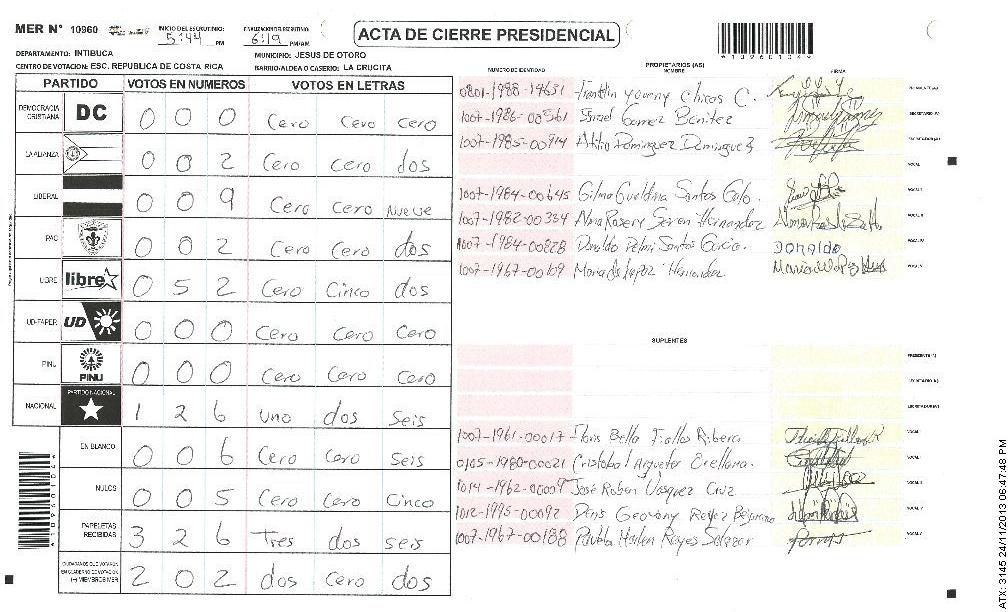 MER N° 10960 INICIO DEL ESCRUTINIO: 5:44 PM FINALIZACION DEL ESCRUTINIO: 6:19 PM/AM
ACTA DE CIERRE PRESIDENCIAL
*109601049*
DEPARTAMENTO: INTIBUCA MUNICIPIO: JESUS DE OTORO
CENTRO DE VOTACION: ESC. REPUBLICA DE COSTA RICA BARRIO/ALDEA O CASERIO: LA CRUCITA
PARTIDO VOTOS EN NUMEROS VOTOS EN LETRAS
DEMOCRACIA CRISTIANA DC 0 0 0 Cero Cero Cero
LA ALIANZA 0 0 2 Cero cero dos
LIBERAL 0 0 9 Cero Cero Nueve
PAC 0 0 2 Cero Cero dos
LIBRE libre 0 5 2 Cero Cinco dos
UD-FAPER UD 0 0 0 Cero Cero Cero
PINU PINU 0 0 0 Cero Cero Cero
NACIONAL PARTIDO NACIONAL 1 2 6 uno dos seis
EN BLANCO 0 0 6 Cero Cero Seis
NULOS 0 0 5 Cero Cero Cinco
PAPELETAS RECIBIDAS 3 2 6 Tres dos seis
CIUDADANOS QUE VOTARON EN CUADERNO DE VOTACION (+) MIEMBROS MER 2 0 2 dos Cero dos
PROPIETARIOS (AS)
NUMERO DE IDENTIDAD NOMBRE FIRMA
0801-1988-19631 Franklin yovany Chicas C. PRESIDENTE (A)
1007-1986-00561 Ismael Gomez Benitez SECRETARIO (A)
1007-1985-00914 Atilio Dominguez Dominguez ESCRUTADOR (A)
VOCAL
1007-1984-00645 Gilma Gualdina Santos VOCAL
1007-1982-00334 Alma Rosery Seren Hernandez VOCAL
1007-1984-00828 Donaldo Santos Garcia. Donaldo VOCAL
1007-1967-00109 Maria de la paz Hernandez Maria de la Paz VOCAL
SUPLENTES
PRESIDENTE (A)
SECRETARIO (A)
ESCRUTADOR (A)
1007-1961-00017 Floris Bella Fiallos Ribera VOCAL
0105-1980-00021 Cristobal Argueta Orellana. VOCAL
1014-1962-00009 José Ruben Vasquez Cruz VOCAL
1012-1995-00092 Denis Geovany Reyez Bejarano VOCAL
1007-1967-00188 Reyes Salazar VOCAL
*109601049*
ATX: 3145 24/11/2013 06:47:48 PM